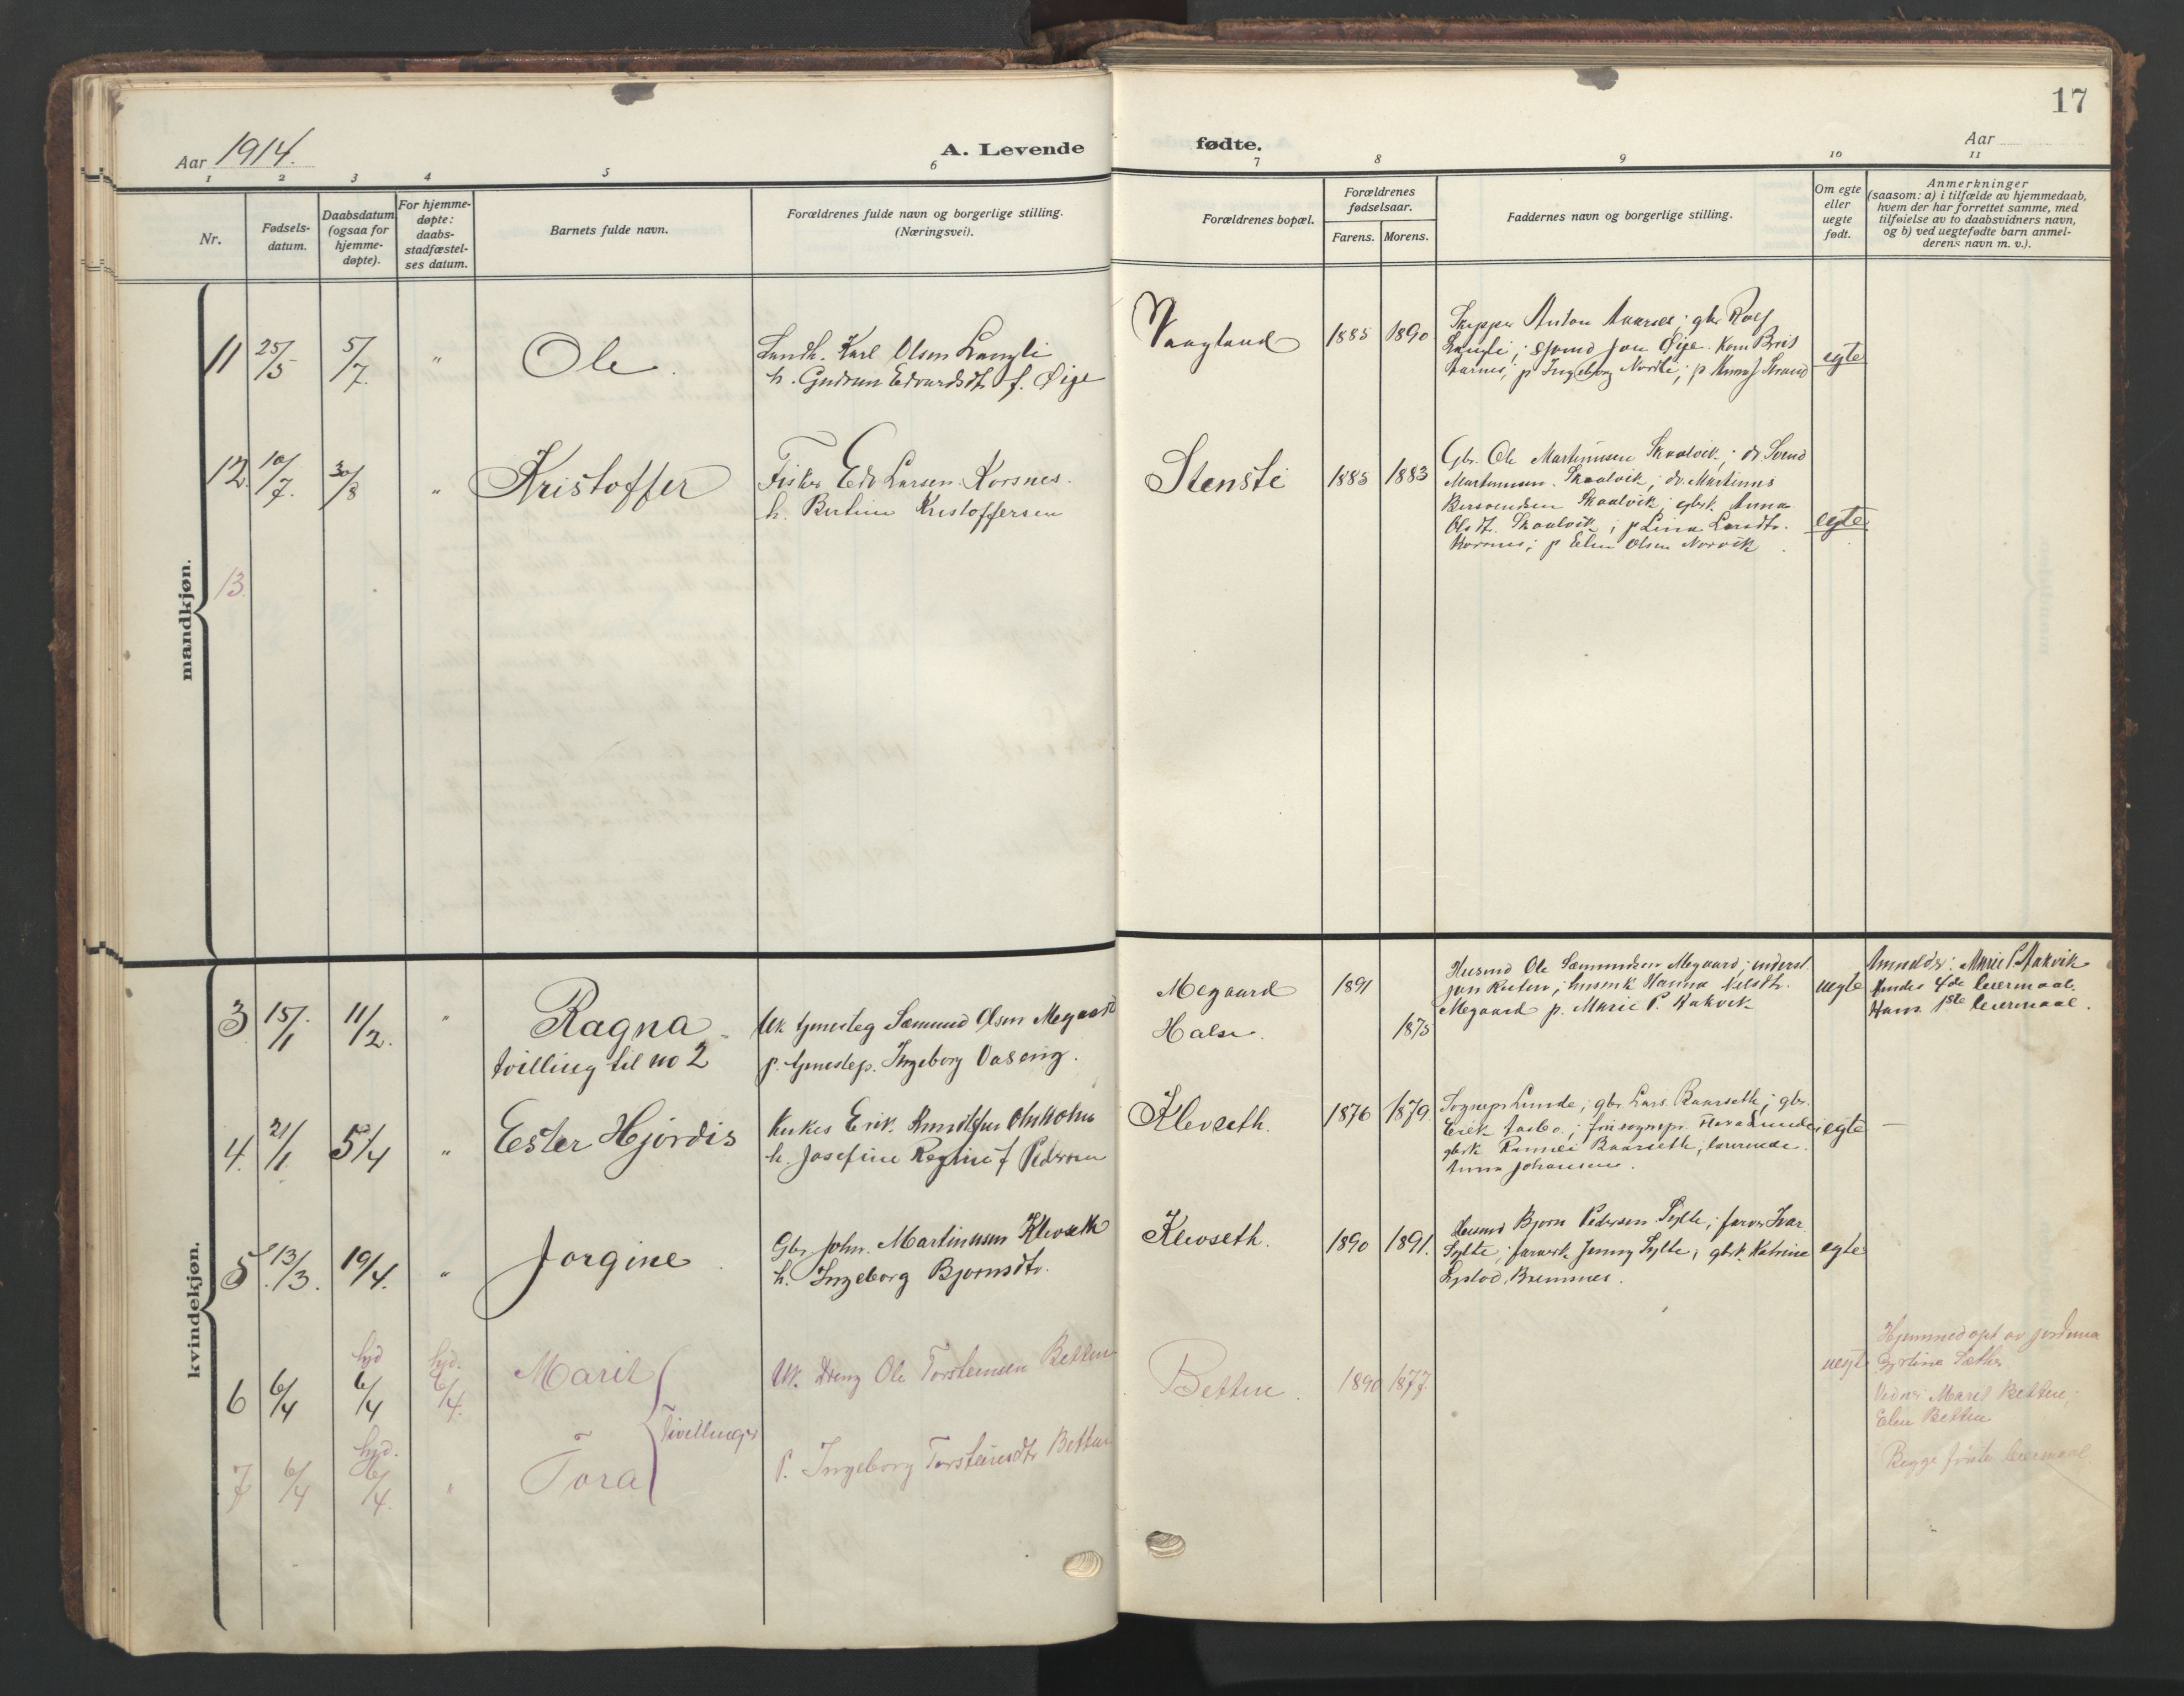 17
Aar 1914.
A. Levende
fødte.
Aar
1 2 3 4 5 6 7 8 9 10 11
Nr.
Fødsels-
datum.
Daabsdatum
(ogsaa for
hjemme-
døpte).
For hjemme-
døpte:
daabs-
stadfæstel-
ses datum.
Barnets fulde navn.
Forældrenes fulde navn og borgerlige stilling.
(Næringsvei).
Forældrenes bopæl.
Forældrenes
fødselsaar.
Farens. Morens.
Faddernes navn og forrettet stilling.
Om egte
eller
uegte
født.
Anmerkninger
(saasom: a) i tilfælde av hjemmedaab,
hvem der har forrettet samme, med
tilføielse av to daabsvidners navn,
og b) ved uegtefødte barn anmel-
derens navn m. v.).
mandkjøn.
11 25/5 5/7. " Ole.
Landh. Karl Olsen Langli
h. Gudrun Edvardsdtr f. Øige
Vaagland 1885 1890
Skipper Anton Aarnes; gbr Rolf
Langli; Jon Øige
Aarnes; p Ingeborg; p Anna J. Strand
egte
12. 10/7. 30/8 " Kristoffer
Fisker Edv Larsen Korsnes.
h. Kristoffersen
Stensti 1885 1883
Gbr. Ole Martinusen Skaalvik; dr. Svend
Martinusen Skaalvik; dr. Martinus
Skaalvik; gbrk Anna
Olsdtr. Skaalvik; p Lina Larsdtr.
Korsnes; p Elen Olsen Norvik
egte
13.
kvindekjøn.
3 15/1 11/2. " Ragna
tvilling til no 2
Uk tjenesteg Sæmund Olsen Megaard
p. tjenestep. Ingeborg Oaseng.
Megaard 1891
Halse. 1875
Husmd Ole Sæmundsen Megaard;
husmk Hanna Nilsdtr.
Megaard p. Marie P. Aakvik
uegte
Anmelder: Marie P. Aakvik
Hendes 4de leiermaal.
Hans 1ste leiermaal.
4. 21/1 5/4 " Ester Hjørdis
Erik
h. Josefine Regine f Pedersen
Klevseth. 1876 1879.
Sognepr Lunde; gbr. Lars Baarseth; gbr.
Erik
gbrk Baarseth; lærerinde
Anna Johansen.
egte —
5. 13/3. 19/4. " Jorgine
Gbr John Martinusen Klevseth
h. Ingeborg Bjørnsdtr.
Klevseth. 1890 1891.
Husmd Bjørn Pedersen Sylte; Ivar
Sylte; Jenny Sylte; gbrk. Katrine
Bremsnes.
egte
6 6/4 hjd 6/4 hjd. 6/4. Marit
Uk. Dreng Ole Torsteinsen Betten
Betten. 1890 1877.
uegte
Hjemmedøpt av jordmor
Sæther
Vidner Marit Betten;
Elen Betten
Tvillinger
7 6/4 hjd. 6/4. " Tora
P. Ingeborg Torsteinsdtr Betten
Begge første leiermaal.